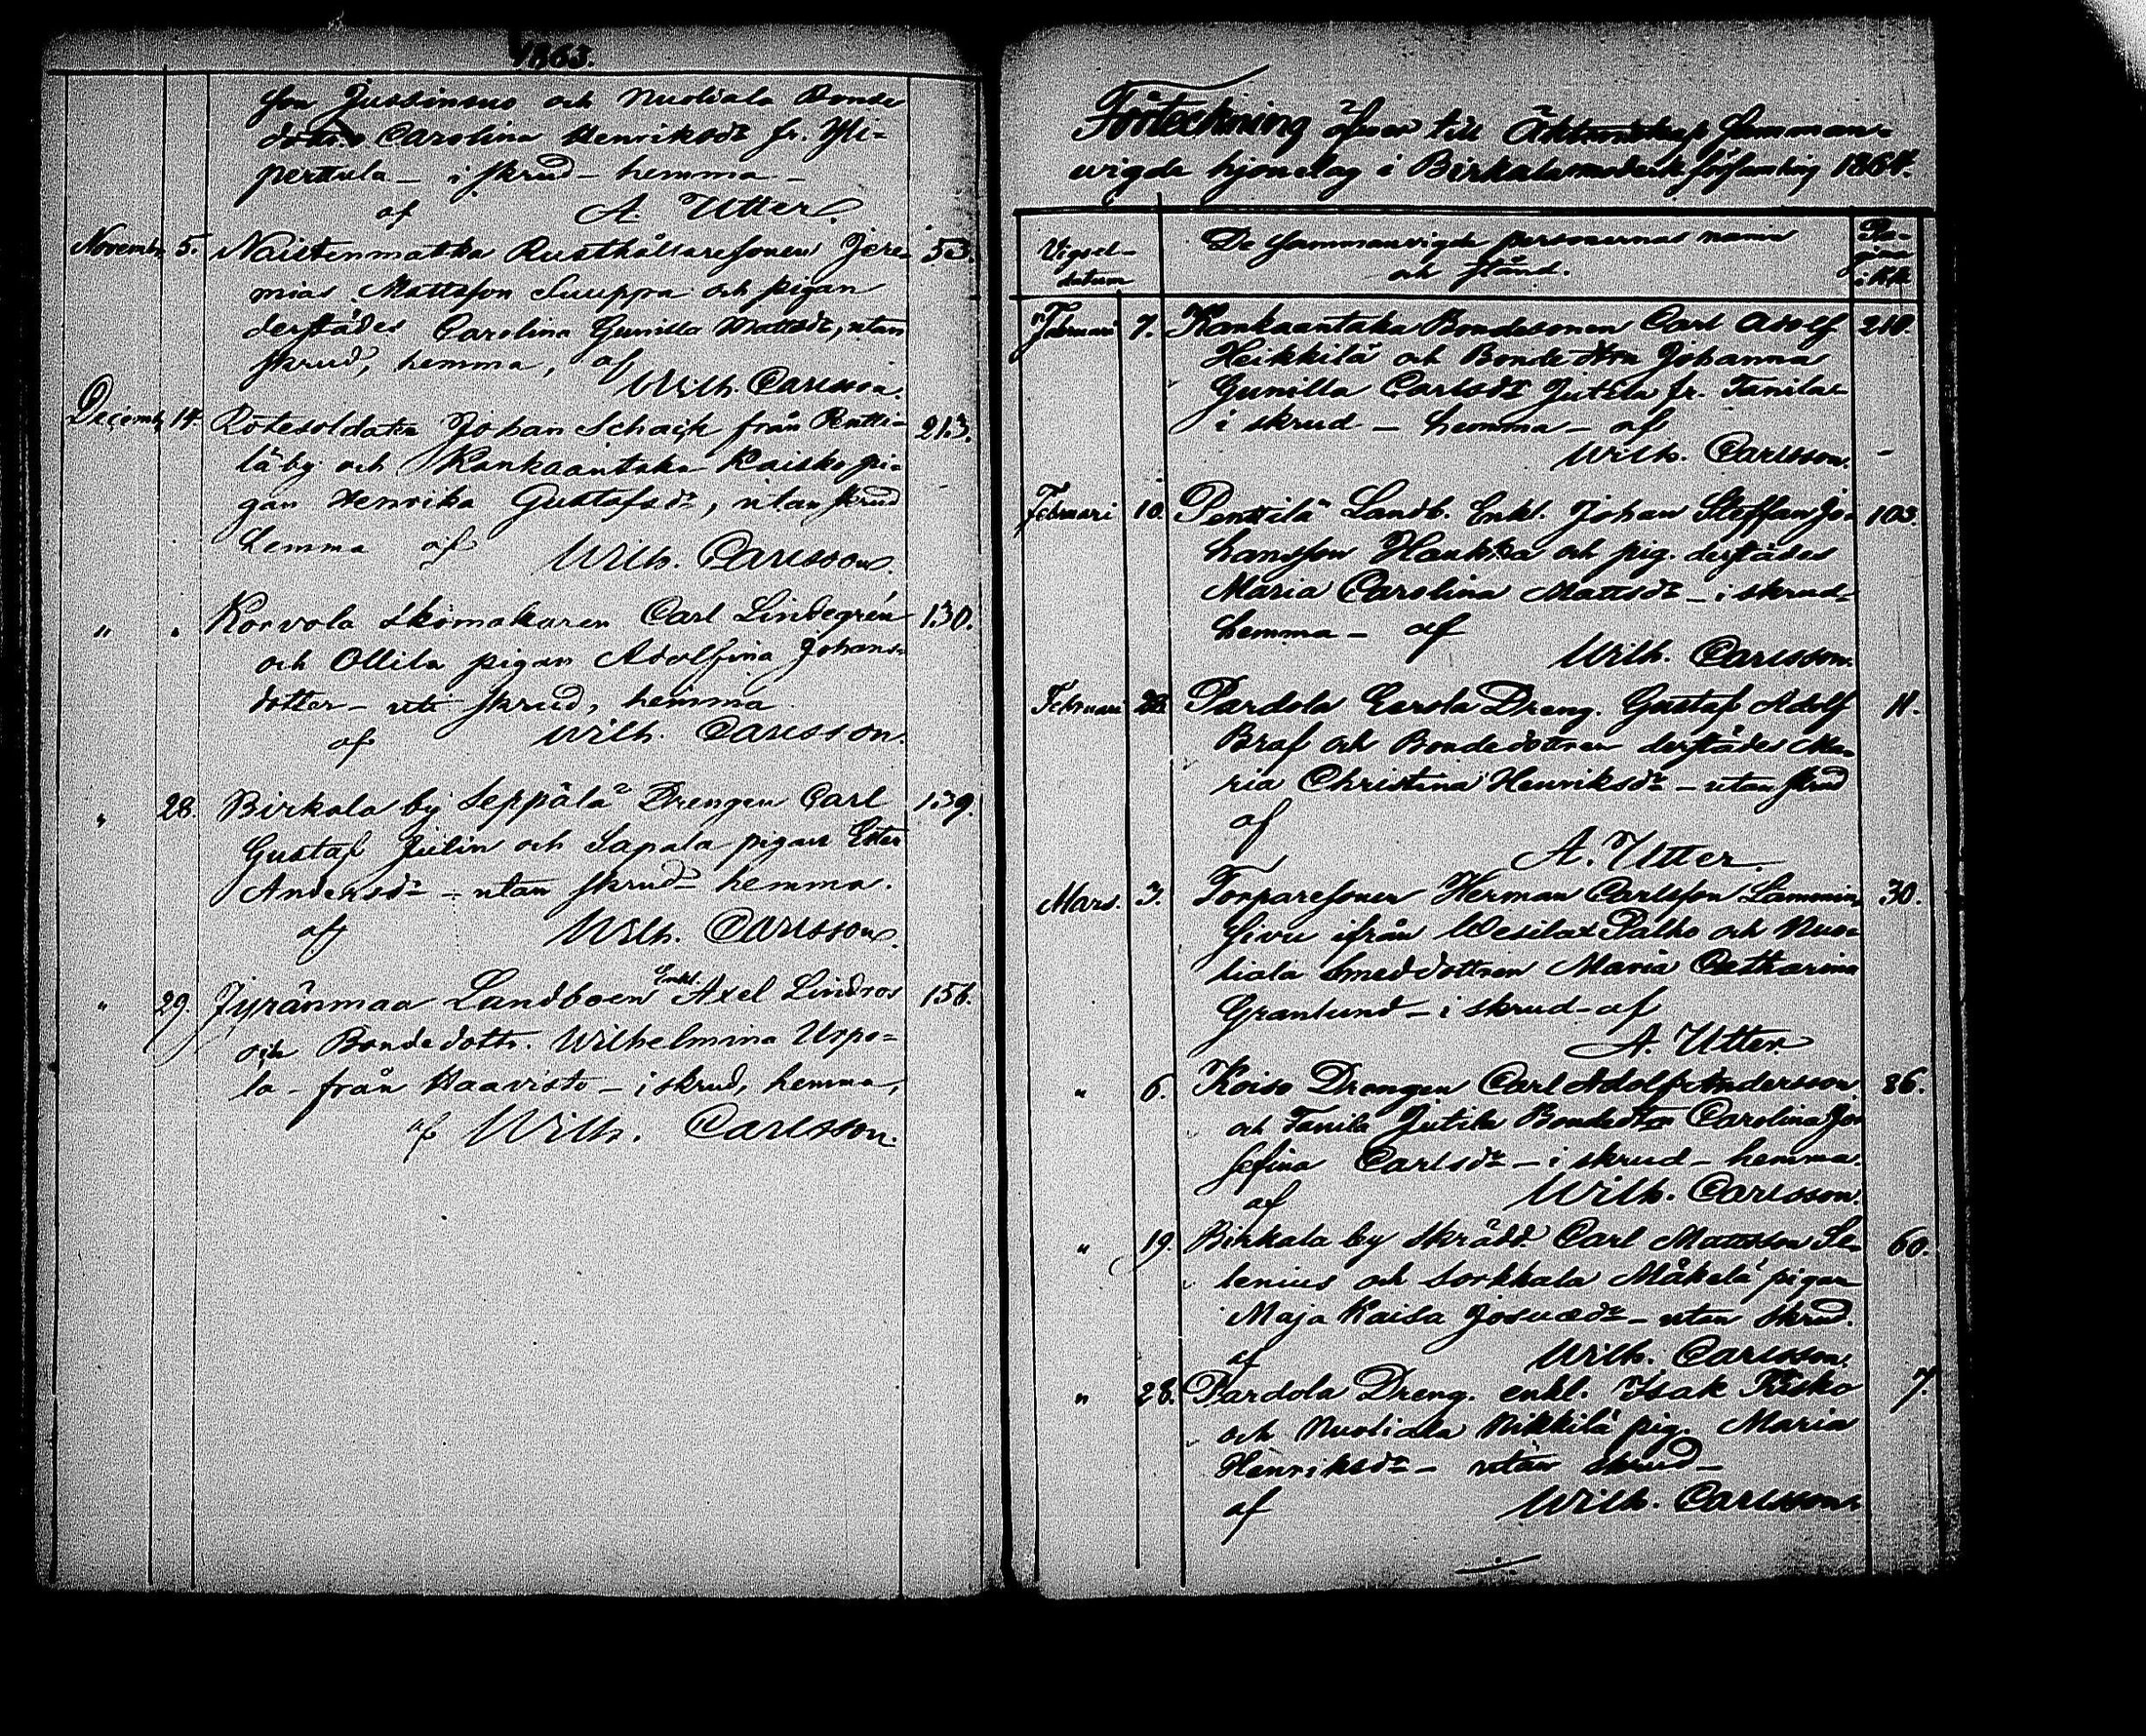 1863.
son Jussinsuo och Nuoliala Bonde
dottr. Carolina Henriksdr fr. Yli-
perttula – i skrud – hemma –
af A. Utter.
Novembr 5. Naistenmatka Rusthållaresonen Jere- 53.
mias Mattsson Suuppa och pigan
derstädes Carolina Gunilla Mattsdr, utan
skrud, hemma, af
Wilh. Carlsson.
Decemb. 14. Rotesoldaten Johan Schaik från Pentti- 213.
lä by och Kankaantaka Kaisko pi-
gan Henrika Gustafsdr, utan skrud
hemma af Wilh. Carlsson.
" " Korvola Skomakaren Carl Lindegrén 130.
och Ollila pigan Adolfina Johans-
dotter – uti skrud, hemma
af Wilh. Carlsson.
" 28. Birkala by Seppälä Drengen Carl 139.
Gustaf Julin och Sapala pigan Ester
Andersdr – utan skrud – hemma.
af Wilh. Carlsson.
" 29. Jyränmaa Landboen Enkl. Axel Lindros 156.
och Bondedottr. Wilhelmina Uspo-
la – från Haavisto – i skrud, hemma,
af Wilh. Carlsson.
Förteckning öfver till Äktenskap samman-
vigde hjonelag i Birkala moderförsamling 1864.
Vigsel-
datum
De Sammanvigde personernas namn
och stånd.
Pa-
gina
i KB
Februari 7. Kankaantaka Bondesonen Carl Adolf 210.
Heikkilä och Bonde dtrn Johanna
Gunilla Carlsdr Jutila fr. Tanila –
i skrud – hemma – af
Wilh. Carlsson. –
Februari 10. Penttilä Landb. Enkl. Johan Steffan Jo- 103.
hansson Haukka och pig. derstädes
Maria Carolina Mattsdr – i skrud –
hemma – af
Wilh. Carlsson.
Februari 28. Pardola Eerola Dreng. Gustaf Adolf 11.
Braf och Bondedottren derstädes Ma-
ria Christina Henriksdr – utan skrud
af
A. Utter.
Mars. 3. Torparesonen Herman Carlsson Lammin 30.
sivu ifrån Wesilax Palho och Nuo-
liala Smeddottren Maria Catharina
Granlund – i skrud – af
A. Utter.
" 6. Koiso Drengen Carl Adolf Andersson 86.
och Tanila Jutila Bondedtrn Carolina Jo-
sefina Carlsdr – i skrud – hemma.
af Wilh. Carlsson.
" 19. Birkala by Skrädd. Carl Mattsson Se- 60.
lenius och Sorkkala Mäkelä pigan
Maja Kaisa Josuædr – utan skrud.
af Wilh. Carlsson.
" 28. Pardola Dreng. enkl. Isak Kisko 7.
och Nuoliala Nikkilä pig. Maria
Henriksdr – utan skrud –
af Wilh. Carlsson.